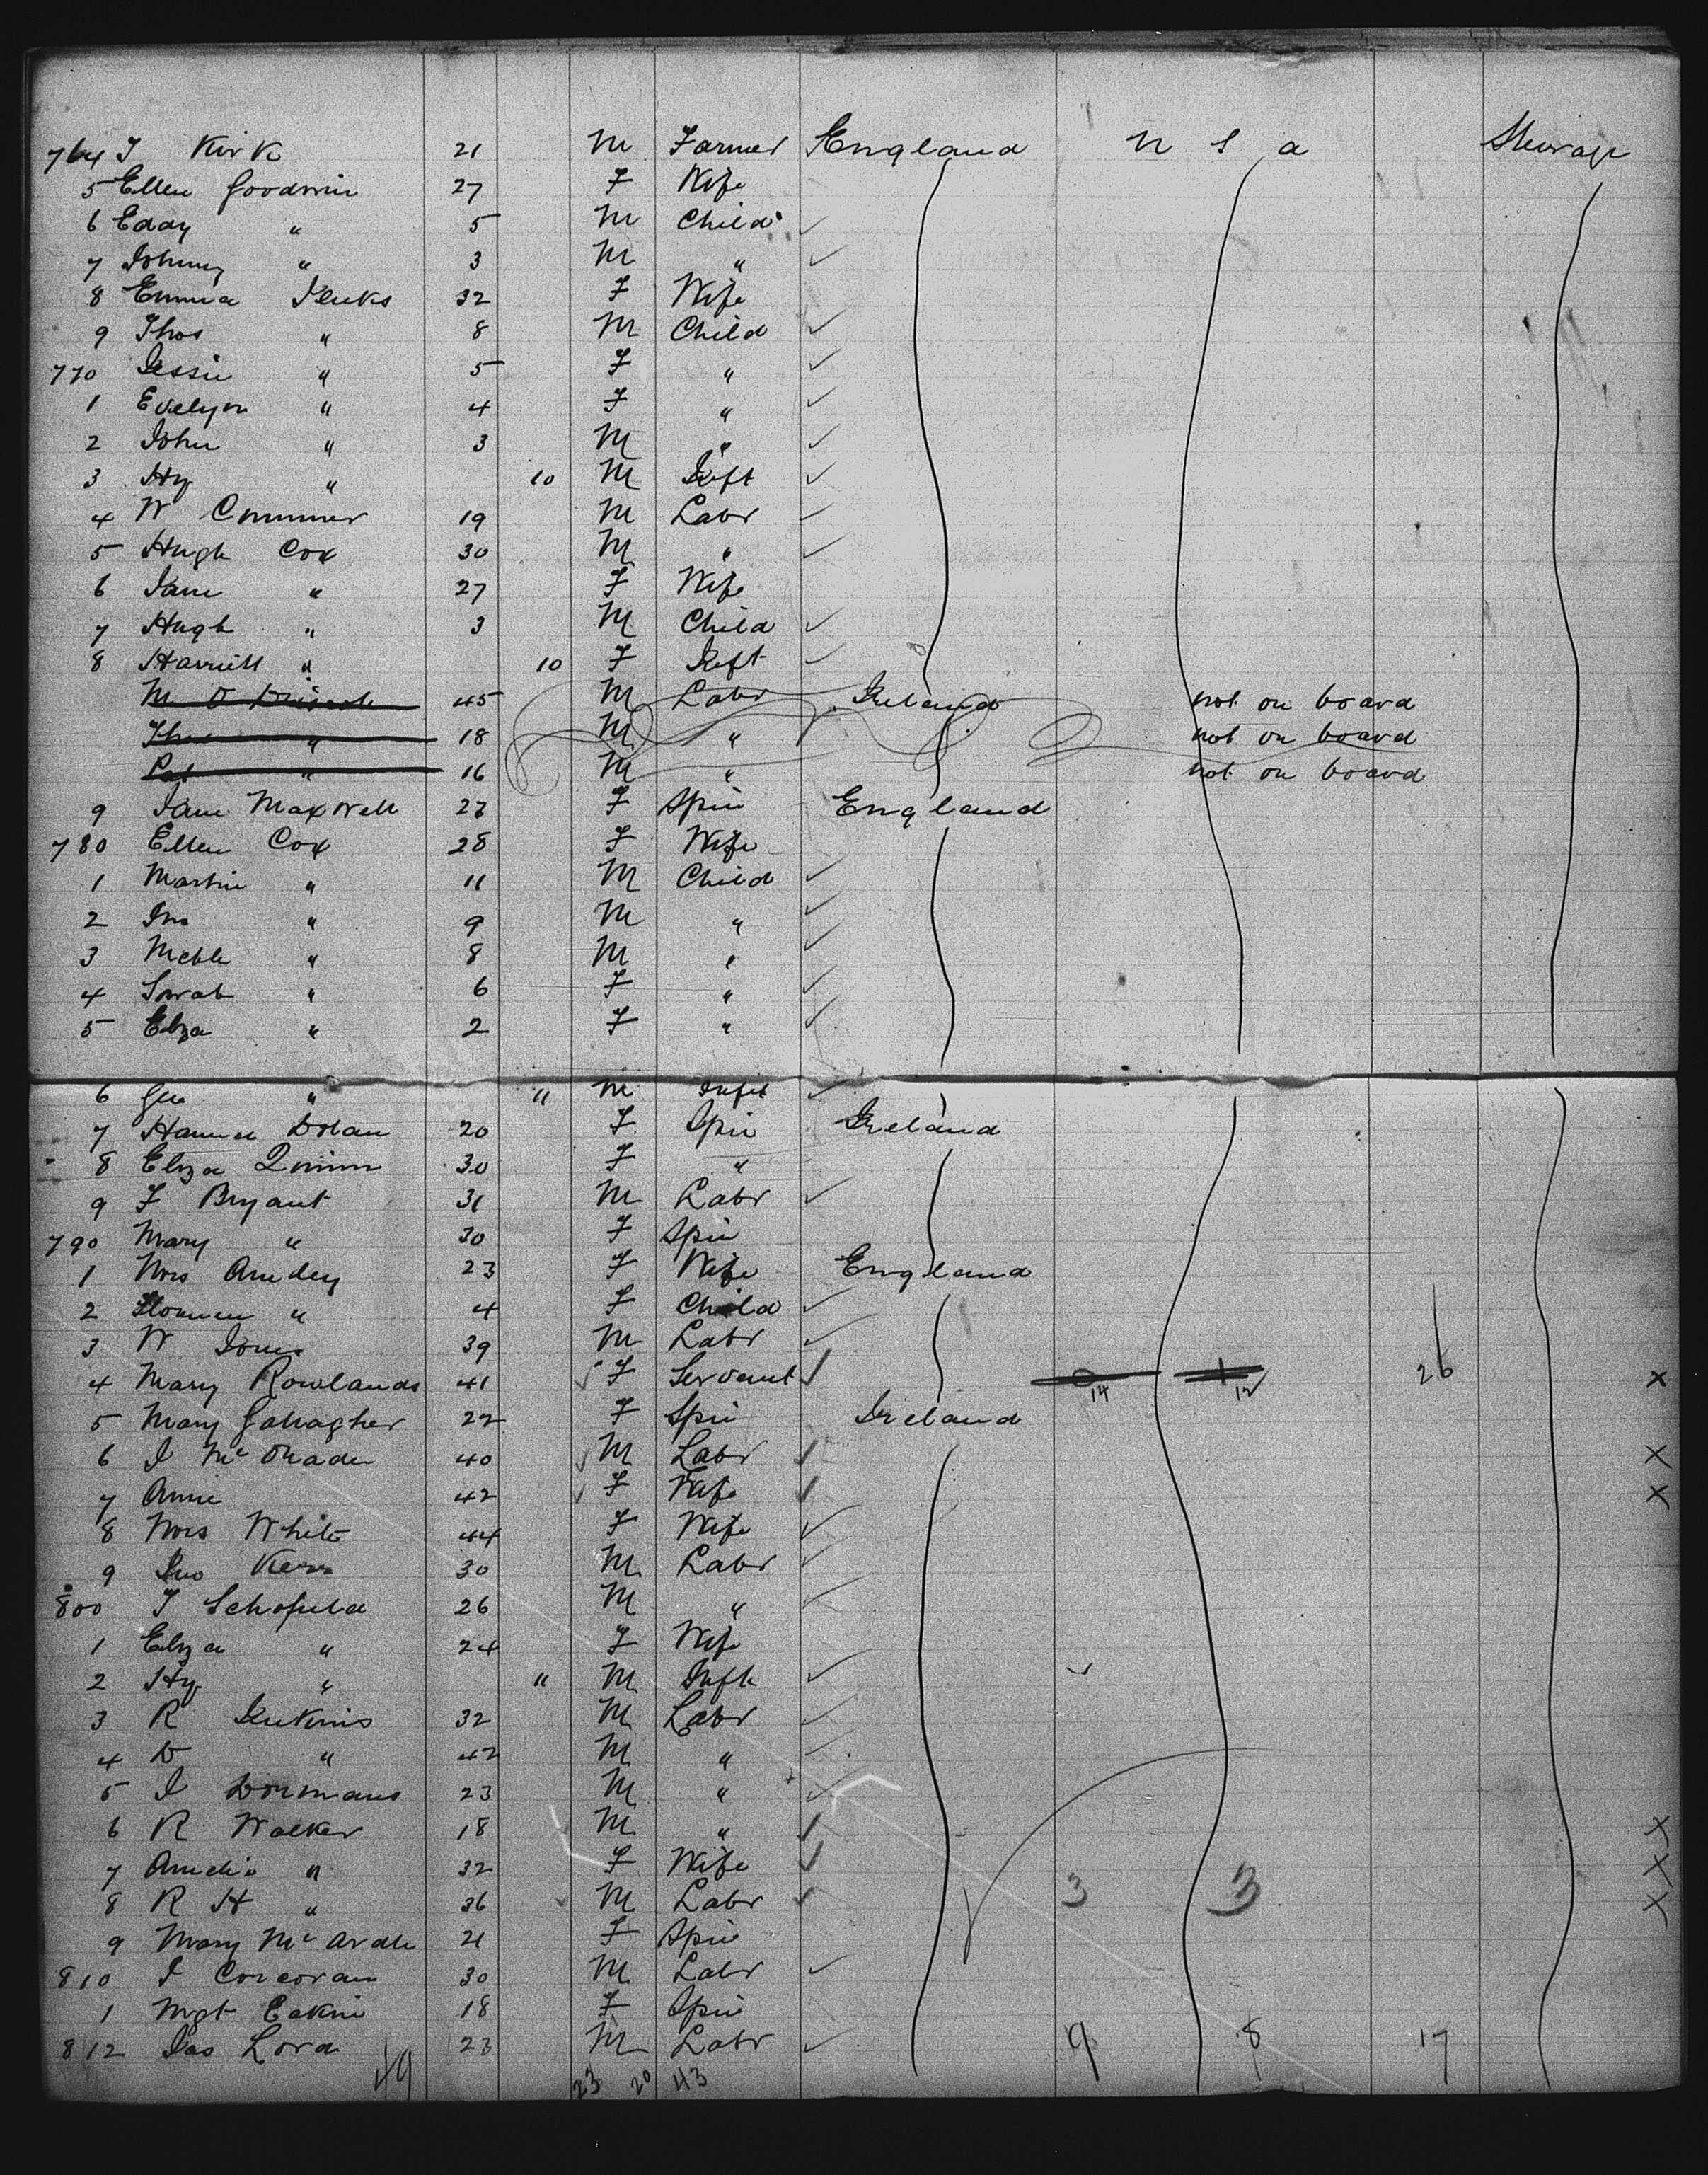 764 J Kirk 21 M Farmer England U S A Steerage
5 Ellen Goodwin 27 F Wife
6 Eddy " 5 M Child
7 Johnny " 3 M "
8 Emma Jenks 32 F Wife
9 Thos " 8 M Child
770 Jessie " 5 F "
1 Evelyn " 4 F "
2 John " 3 M "
3 Hy " 10 M Inft
4 W Cummer 19 M Labr
5 Hugh Cox 30 M "
6 Jane " 27 F Wife
7 Hugh " 3 M Child
8 Harriett " 10 F Inft
M O 45 M Labr Ireland not on board
Thos " 18 M " not on board
Pat " 16 M " not on board
9 Jane Maxwell 27 F Spin England
780 Ellen Cox 28 F Wife
1 Martin " 11 M Child
2 Jno " 9 M "
3 " 8 M "
4 Sarah " 6 F "
5 Eliza " 2 F "
6 Geo " 11 M Inft
7 Hannah Dolan 20 F Spin Ireland
8 Eliza Quinn 30 F "
9 F Bryant 31 M Labr
790 Mary " 30 F Spin
1 Mrs Amdey 23 F Wife England
2 " 4 F Child
3 W Jones 39 M Labr 26
4 Mary Rowlands 41 F Servant 14 12 x
5 Mary Gallagher 22 F Spin Ireland
6 J Mc Dade 40 M Labr x
7 Annie 42 F Wife x
8 Mrs White 44 F Wife
9 Jno Kerr 30 M Labr
800 J Schofield 26 M "
1 Eliza " 24 F Wife
2 Hy " 11 M Inft
3 R Jenkins 32 M Labr
4 D " 42 M "
5 J Dormans 23 M "
6 R Walker 18 M " x
7 Amelia " 32 F Wife x
8 R H " 36 M Labr 3 3 x
9 Mary Mc Ardle 21 F Spin
810 J Corcoran 30 M Labr
1 Mgt Eakin 18 F Spin
812 Jas Lord 23 M Labr 9 8 17
49 23 20 43